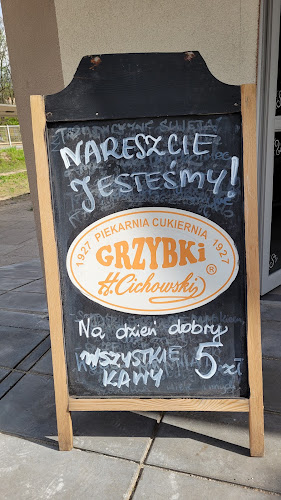 NARESZCIE
JESTEŚMY!
1927 PIEKARNIA CUKIERNIA 1927
GRZYBKi
H. Cichowski ®
Na dzień dobry
WSZYSTKIE 5 zł
KAWY